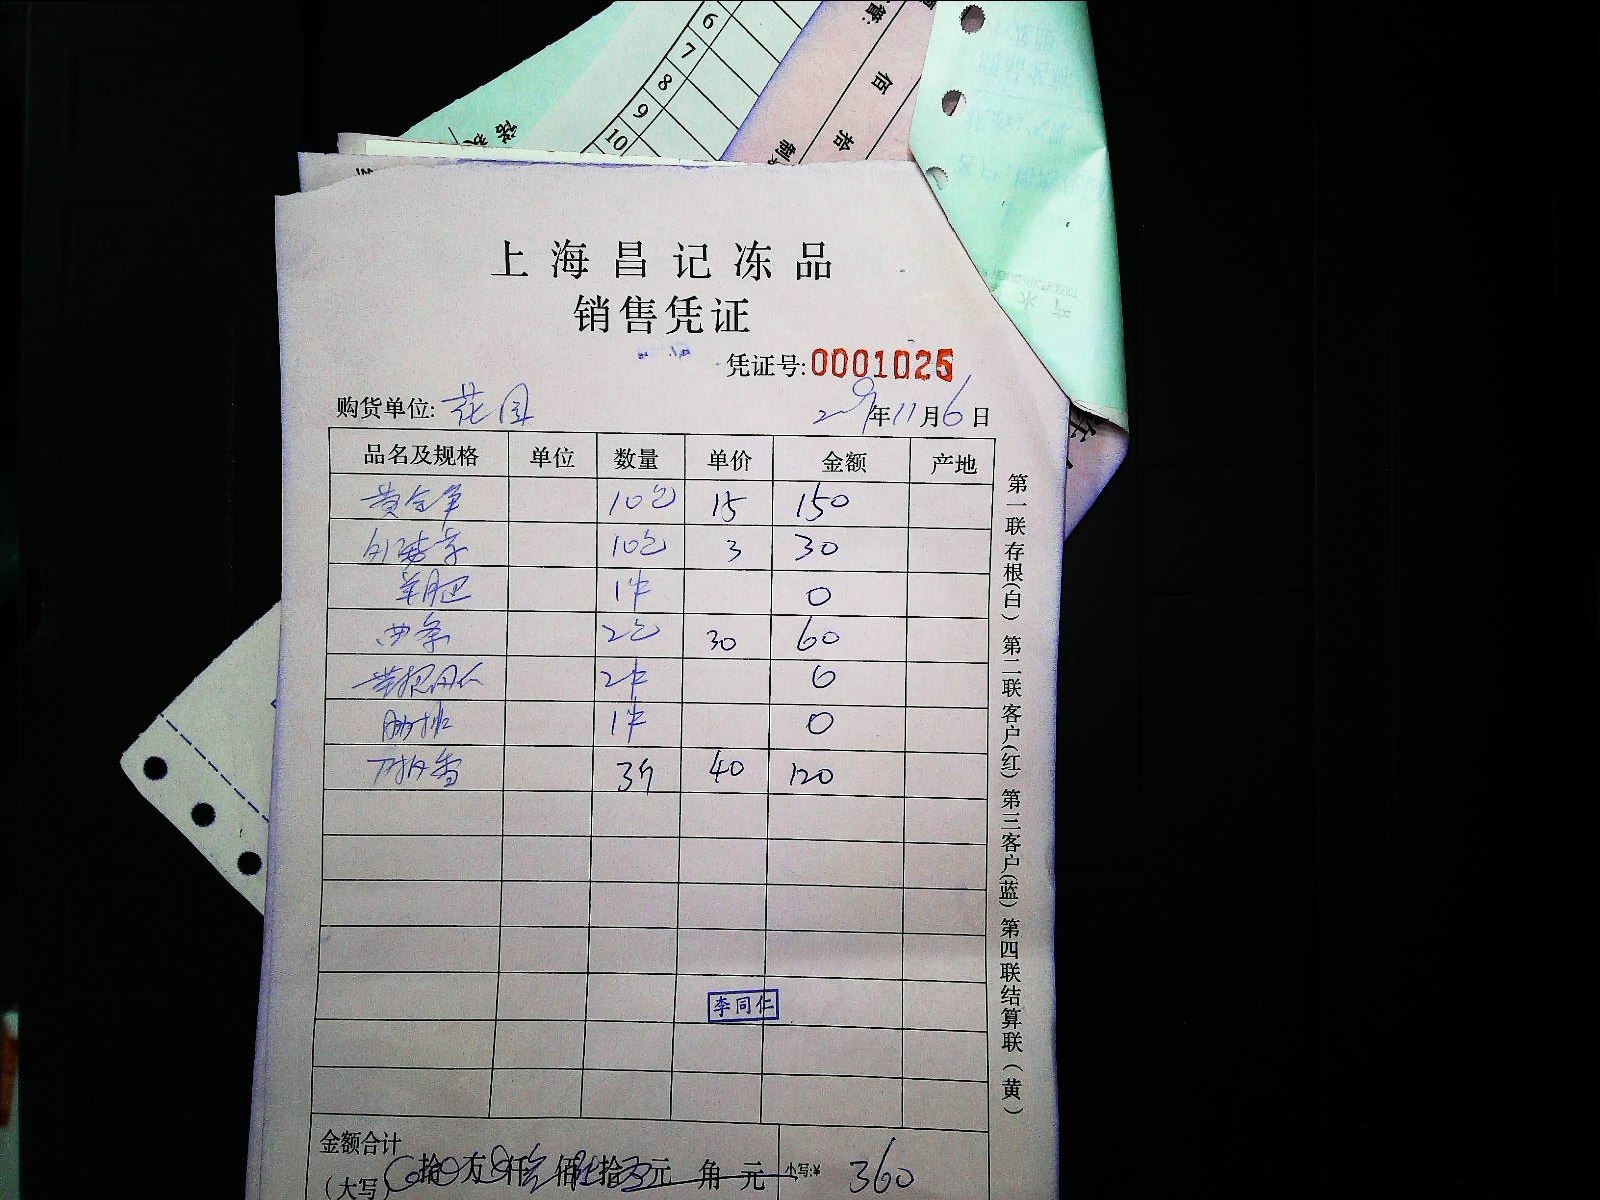 6
7
8
9
10
佰
拾
上海昌记冻品
销售凭证
凭证号:0001025
购货单位: 花园 年11月6日
品名及规格 单位 数量 单价 金额 产地
10包 15 150
10包 3 30
羊肥 1件 0
西条 2包 30 60
2件 0
肋排 1件 0
3斤 40 120
李同仁
金额合计
(大写) 拾 万 仟 佰 拾 元 角 元 小写:¥ 360
第一联存根(白) 第二联客户(红) 第三客户(蓝) 第四联结算联(黄)